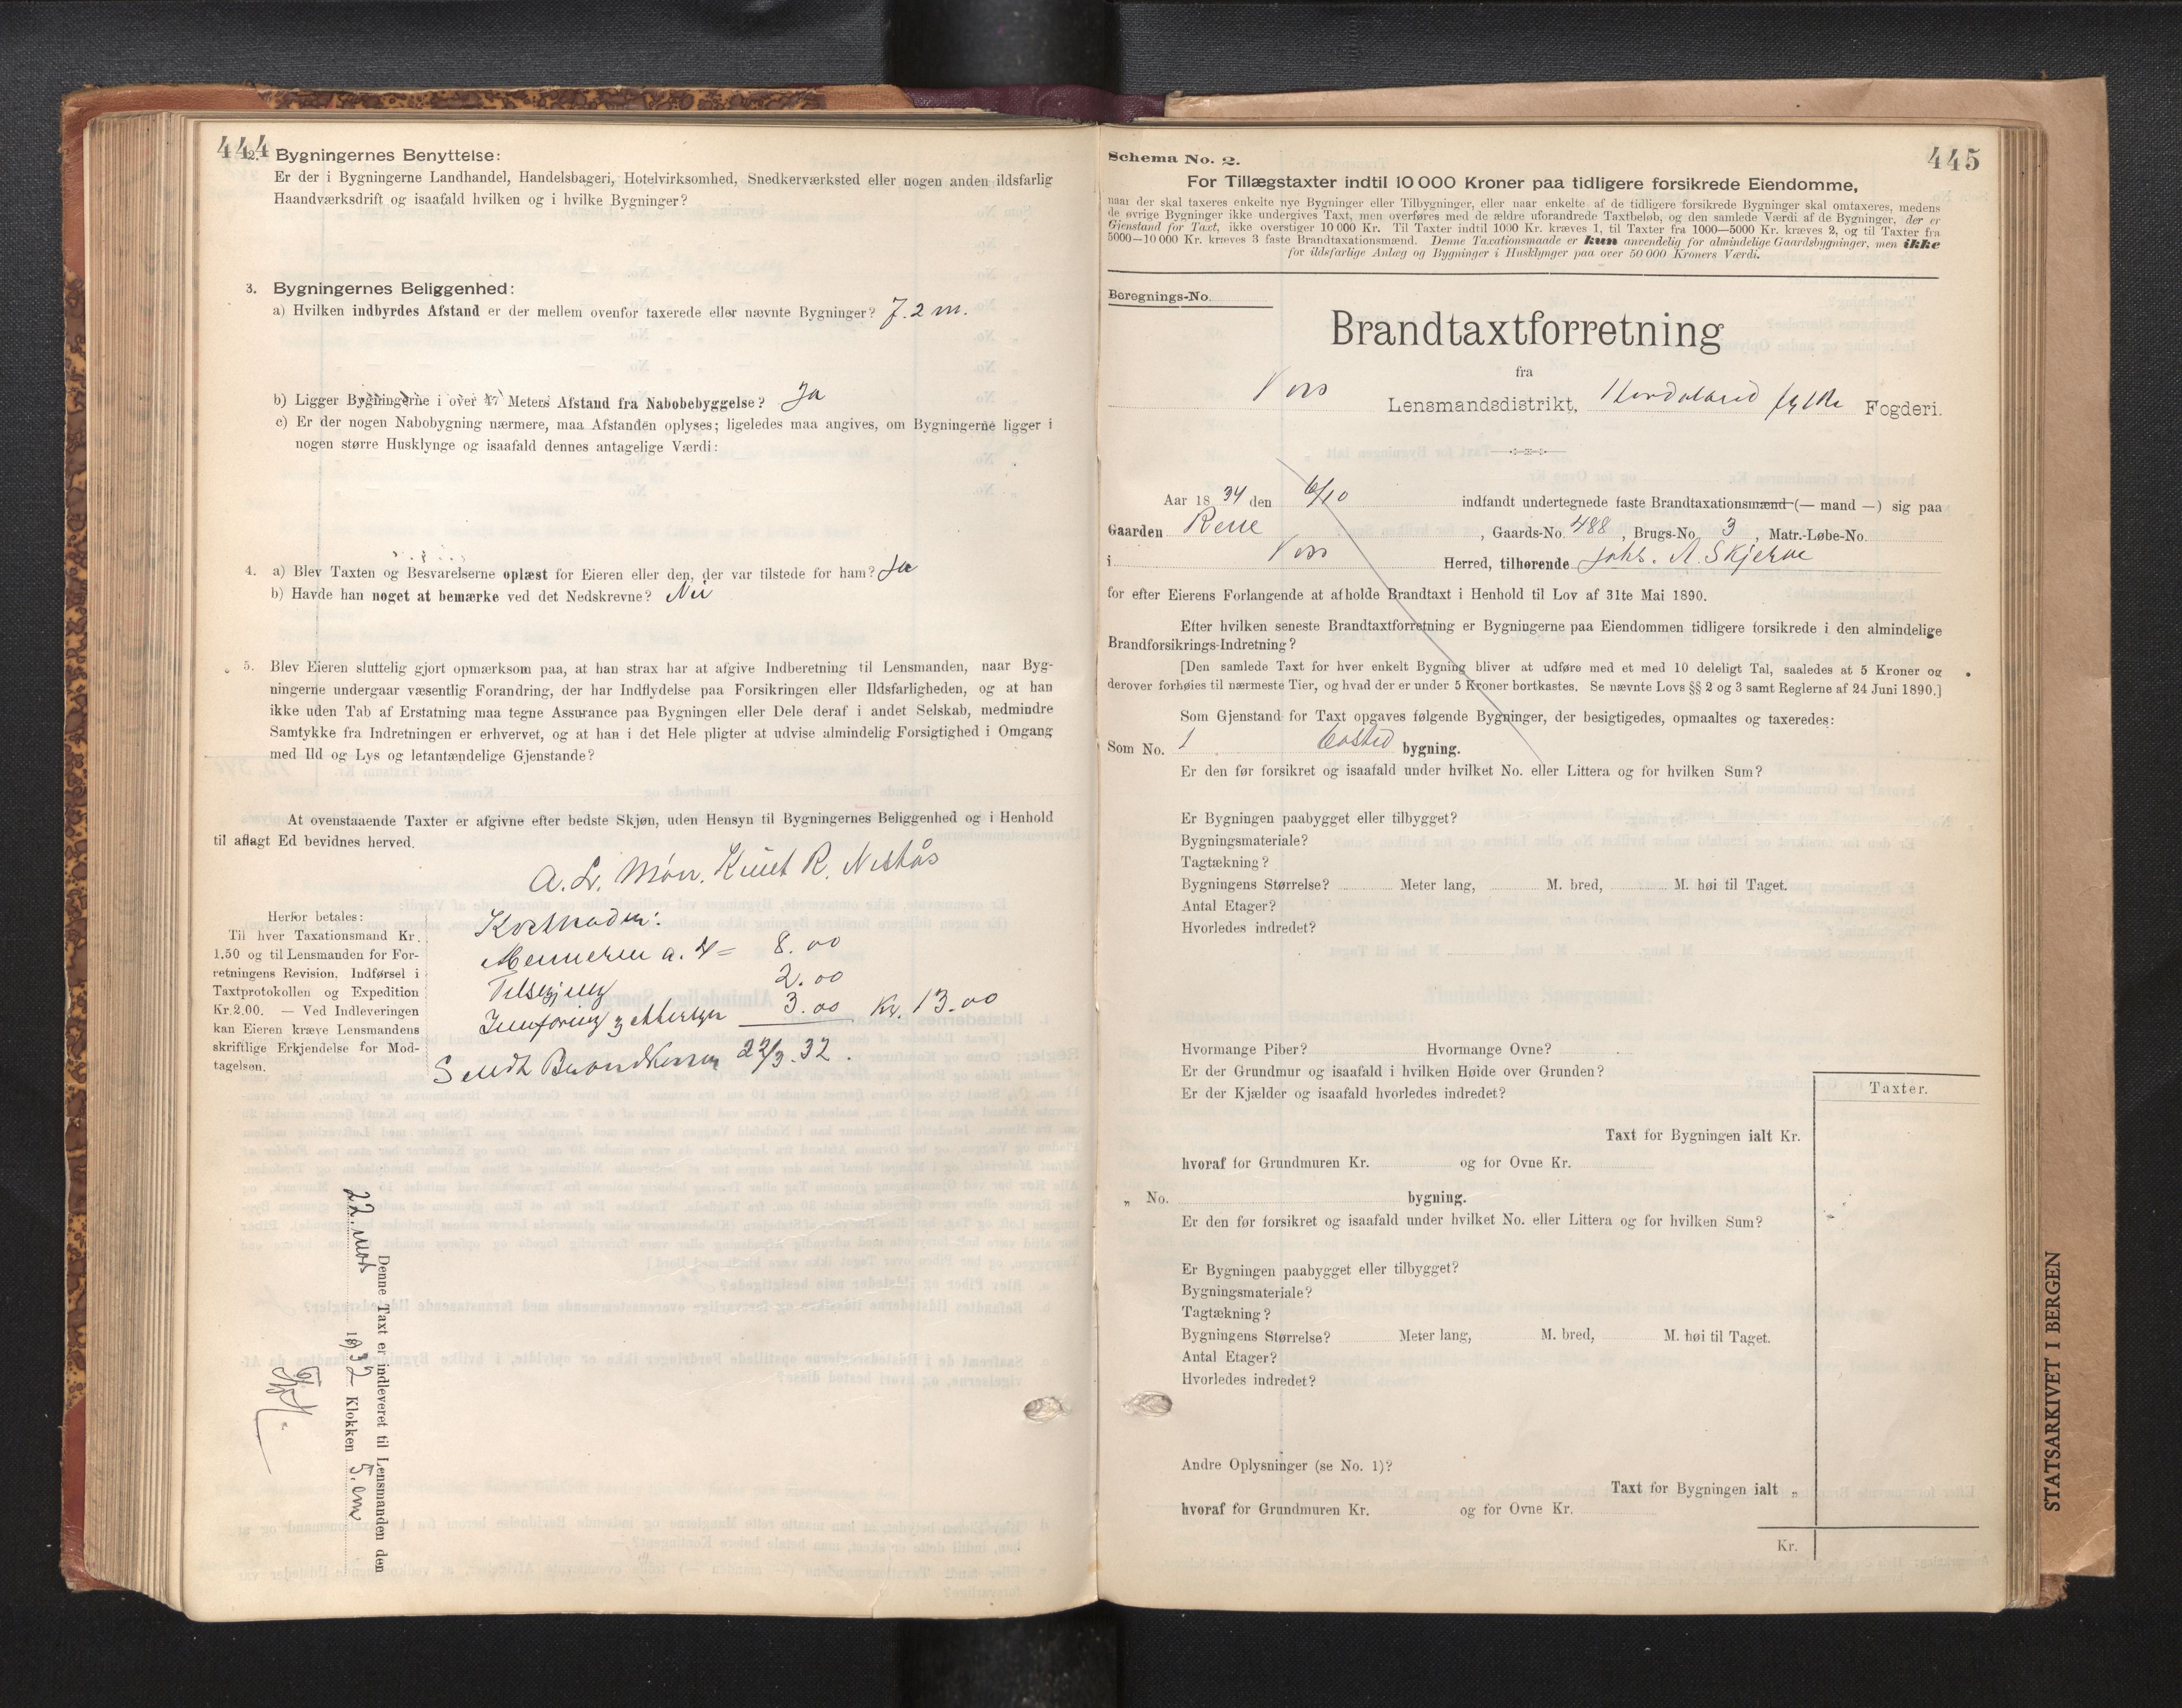 444
2. Bygningernes Benyttelse:
Er der i Bygningerne Landhandel, Handelsbageri, Hotelvirksomhed, Snedkerværksted eller nogen anden ildsfarlig
Haandværksdrift og isaafald hvilken og i hvilke Bygninger?
3. Bygningernes Beliggenhed:
a) Hvilken indbyrdes Afstand er der mellem ovenfor taxerede eller nævnte Bygninger? 7.2 m.
b) Ligger Bygningerne i over 47 Meters Afstand fra Nabobebyggelse? Ja
c) Er der nogen Nabobygning nærmere, maa Afstanden oplyses; ligeledes maa angives, om Bygningerne ligger i
nogen større Husklynge og isaafald dennes antagelige Værdi:
4. a) Blev Taxten og Besvarelserne oplæst for Eieren eller den, der var tilstede for ham? Ja
b) Havde han noget at bemærke ved det Nedskrevne? Nei
5. Blev Eieren sluttelig gjort opmærksom paa, at han strax har at afgive Indberetning til Lensmanden, naar Byg-
ningerne undergaar væsentlig Forandring, der har Indflydelse paa Forsikringen eller Ildsfarligheden, og at han
ikke uden Tab af Erstatning maa tegne Assurance paa Bygningen eller Dele deraf i andet Selskab, medmindre
Samtykke fra Indretningen er erhvervet, og at han i det Hele pligter at udvise almindelig Forsigtighed i Omgang
med Ild og Lys og letantændelige Gjenstande?
At ovenstaaende Taxter er afgivne efter bedste Skjøn, uden Hensyn til Bygningernes Beliggenhed og i Henhold
til aflagt Ed bevidnes herved.
A. L. Møen. Knut R. Nestås
Herfor betales:
Til hver Taxationsmand Kr.
1.50 og til Lensmanden for For-
retningens Revision, Indførsel i
Taxtprotokollen og Expedition
Kr. 2.00. — Ved Indleveringen
kan Eieren kræve Lensmandens
skriftlige Erkjendelse for Mod-
tagelsen.
Kostnader:
Mennerne a. 4 = 8.00
2.00
3.00 Kr. 13.00
Sendt Brandkassen 22/3. 32.
Denne Taxt er indleveret til Lensmanden den
22. mars 1932 Klokken 5. em
445
Schema No. 2.
For Tillægstaxter indtil 10 000 Kroner paa tidligere forsikrede Eiendomme,
naar der skal taxeres enkelte nye Bygninger eller Tilbygninger, eller naar enkelte af de tidligere forsikrede Bygninger skal omtaxeres, medens
de øvrige Bygninger ikke undergives Taxt, men overføres med de ældre uforandrede Taxtbeløb, og den samlede Værdi af de Bygninger, der er
Gjenstand for Taxt, ikke overstiger 10 000 Kr. Til Taxter indtil 1000 Kr. kræves 1, til Taxter fra 1000—5000 Kr. kræves 2, og til Taxter fra
5000—10 000 Kr. kræves 3 faste Brandtaxationsmænd. Denne Taxationsmaade er kun anvendelig for almindelige Gaardsbygninger, men ikke
for ildsfarlige Anlæg og Bygninger i Husklynger paa over 50 000 Kroners Værdi.
Beregnings-No.
Brandtaxtforretning
fra
Voss Lensmandsdistrikt, Hordaland fylke Fogderi.
Aar 18 34 den 6/10 indfandt undertegnede faste Brandtaxationsmænd (— mand —) sig paa
Gaarden Rene, Gaards-No. 488, Brugs-No. 3, Matr.-Løbe-No.
i Voss Herred, tilhørende Johs. A. Skjerve
for efter Eierens Forlangende at afholde Brandtaxt i Henhold til Lov af 31te Mai 1890.
Efter hvilken seneste Brandtaxtforretning er Bygningerne paa Eiendommen tidligere forsikrede i den almindelige
Brandforsikrings-Indretning?
[Den samlede Taxt for hver enkelt Bygning bliver at udføre med et med 10 deleligt Tal, saaledes at 5 Kroner og
derover forhøies til nærmeste Tier, og hvad der er under 5 Kroner bortkastes. Se nævnte Lovs §§ 2 og 3 samt Reglerne af 24 Juni 1890.]
Som Gjenstand for Taxt opgaves følgende Bygninger, der besigtigedes, opmaaltes og taxeredes:
Som No. 1 bygning.
Er den før forsikret og isaafald under hvilket No. eller Littera og for hvilken Sum?
Er Bygningen paabygget eller tilbygget?
Bygningsmateriale?
Tagtækning?
Bygningens Størrelse? Meter lang, M. bred, M. høi til Taget.
Antal Etager?
Hvorledes indredet?
Hvormange Piber? Hvormange Ovne?
Er der Grundmur og isaafald i hvilken Høide over Grunden?
Er der Kjælder og isaafald hvorledes indredet?
Taxter.
Taxt for Bygningen ialt Kr.
hvoraf for Grundmuren Kr. og for Ovne Kr.
„ No. bygning.
Er den før forsikret og isaafald under hvilket No. eller Littera og for hvilken Sum?
Er Bygningen paabygget eller tilbygget?
Bygningsmateriale?
Tagtækning?
Bygningens Størrelse? Meter lang, M. bred, M. høi til Taget.
Antal Etager?
Hvorledes indredet?
Andre Oplysninger (se No. 1)?
Taxt for Bygningen ialt „
hvoraf for Grundmuren Kr. og for Ovne Kr.
Kr.
STATSARKIVET I BERGEN